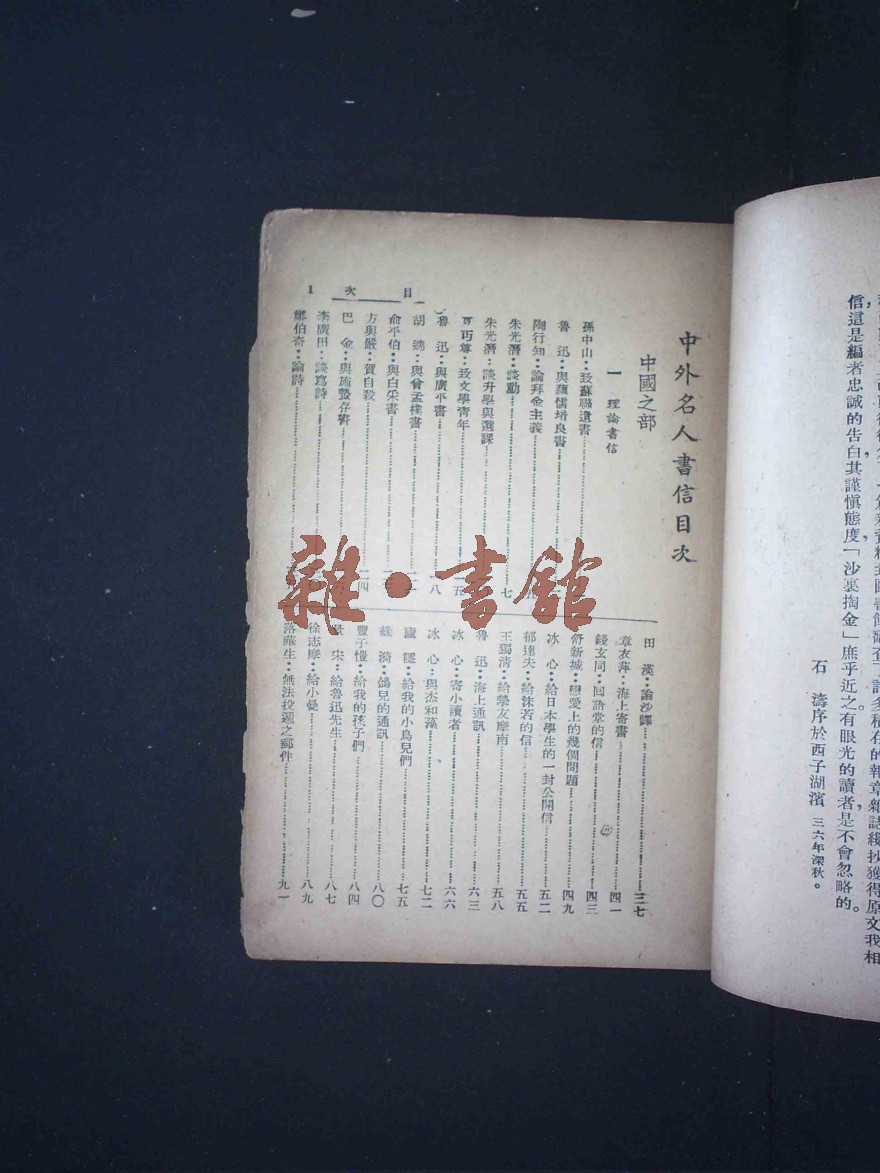 信這是編者忠誠的告白其謹慎態度「沙裏掏金」庶乎近之有眼光的讀者是不會忽略的。
石 濤序於西子湖濱 三六年深秋。
中外名人書信目次
中國之部
一 理論書信
孫中山：致蘇聯遺書
魯 迅：與蕭儒培良書
陶行知：論拜金主義
朱光潛：談動……七
朱光潛：談升學與選課
丏尊：致文學青年……一五
魯 迅：與廣平書……一八
胡 適：與曾孟樸書
俞平伯：與白采書
方與嚴：賀自殺……二四
巴 金：與施蟄存書
李廣田：談寫詩
鄭伯奇：論詩
田 漢：論沙譯……三七
章衣萍：海上寄書……四一
錢玄同：回語堂的信……四三
舒新城：戀愛上的幾個問題……四九
冰 心：給日本學生的一封公開信……五二
郁達夫：給沫若的信……五五
王獨清：給摯友摩南……五八
魯 迅：海上通訊……六三
冰 心：寄小讀者……六六
冰 心：與杰和藻……七二
廬 隱：給我的小鳥兒們……七五
綠 漪：鴿兒的通訊……八〇
豐子愷：給我的孩子們……八四
景 宋：給魯迅先生……八七
徐志摩：給小曼……八九
落華生：無法投遞之郵件……九一
目次
1
雜·書館